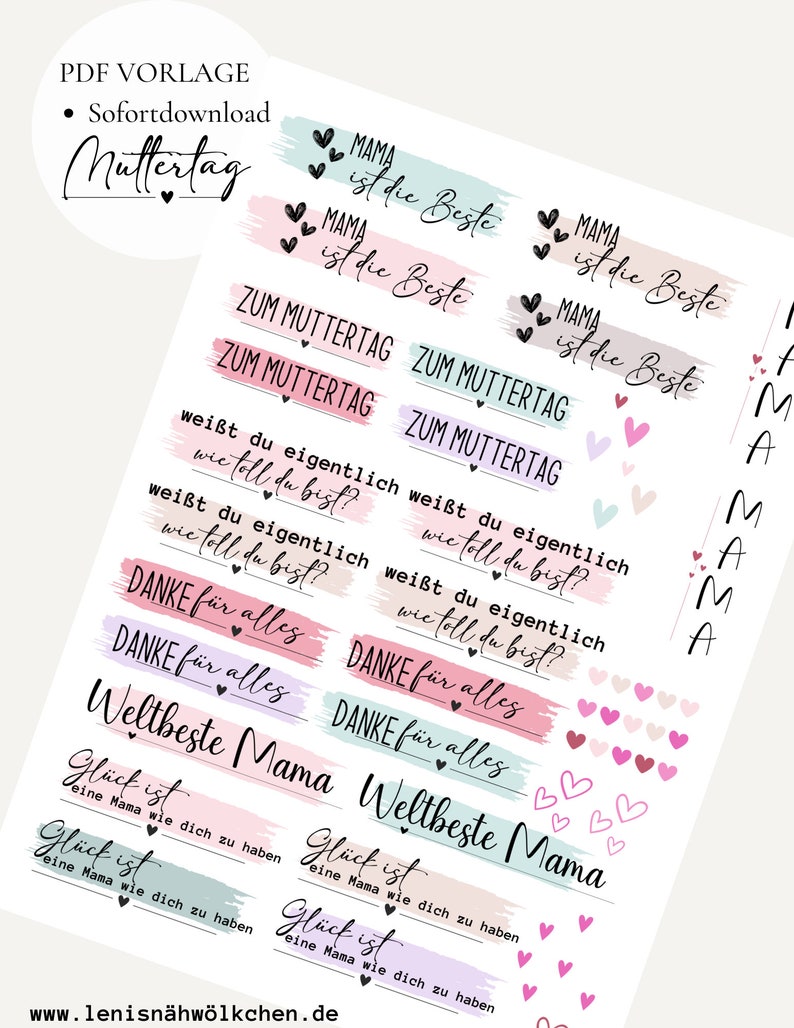 PDF VORLAGE
• Sofortdownload
Muttertag
MAMA
ist die Beste
MAMA
ist die Beste
MAMA
ist die Beste
MAMA
ist die Beste
ZUM MUTTERTAG
ZUM MUTTERTAG
ZUM MUTTERTAG
ZUM MUTTERTAG
weißt du eigentlich
wie toll du bist?
weißt du eigentlich
wie toll du bist?
weißt du eigentlich
wie toll du bist?
weißt du eigentlich
wie toll du bist?
DANKE für alles
DANKE für alles
DANKE für alles
DANKE für alles
Weltbeste Mama
Weltbeste Mama
Glück ist
eine Mama wie dich zu haben
Glück ist
eine Mama wie dich zu haben
Glück ist
eine Mama wie dich zu haben
Glück ist
eine Mama wie dich zu haben
MAMA
MAMA
www.lenisnähwölkchen.de